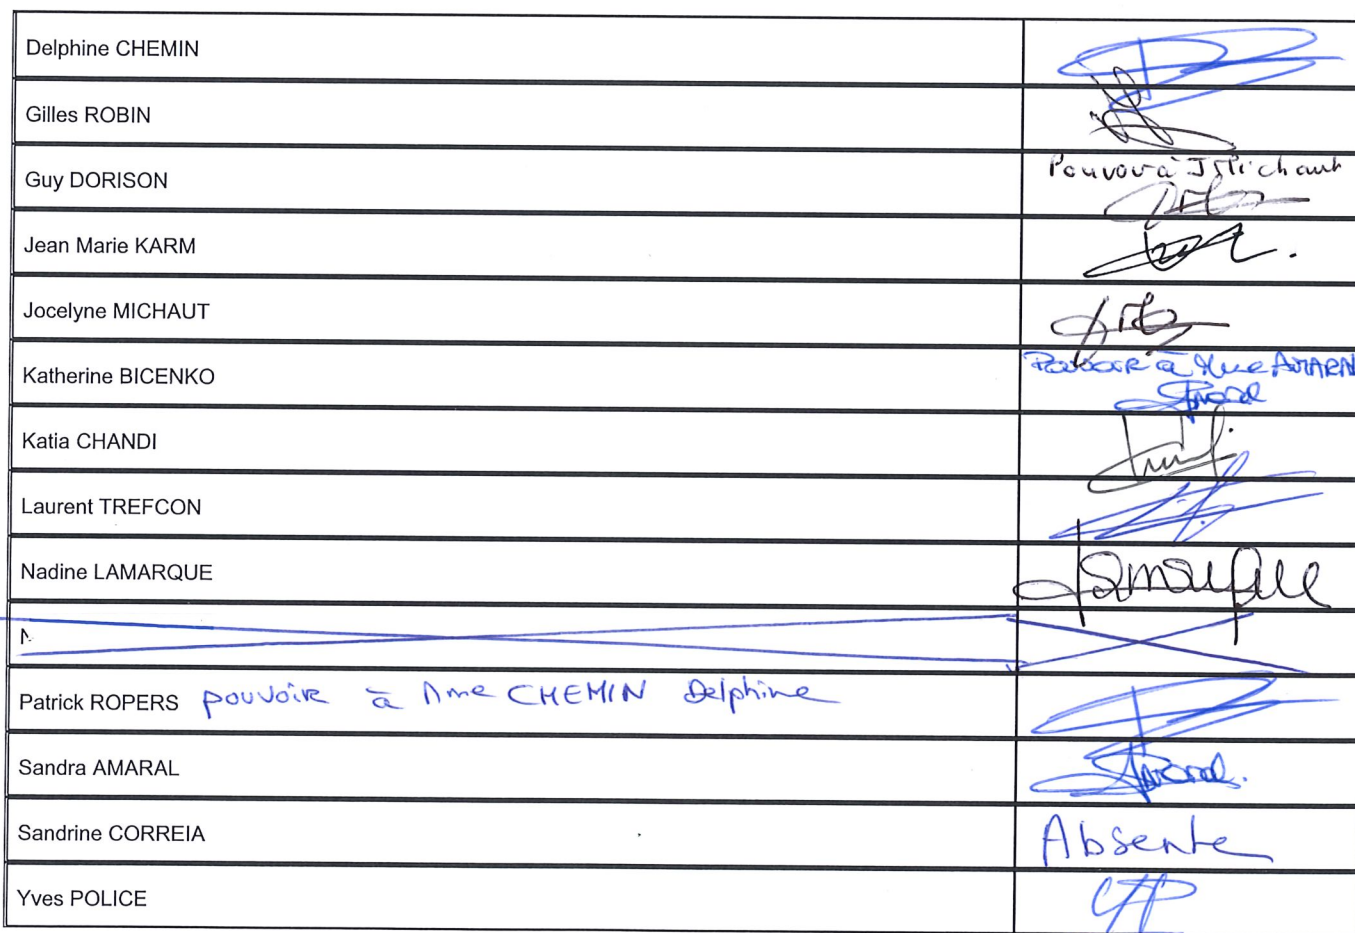 Delphine CHEMIN
Gilles ROBIN
Guy DORISON Pouvoir à J Michaut
Jean Marie KARM
Jocelyne MICHAUT
Katherine BICENKO Pouvoir à Mme AMARA
Amaral
Katia CHANDI
Laurent TREFCON
Nadine LAMARQUE Lamarque
Patrick ROPERS pouvoir à Mme CHEMIN Delphine
Sandra AMARAL Amaral
Sandrine CORREIA Absente
Yves POLICE